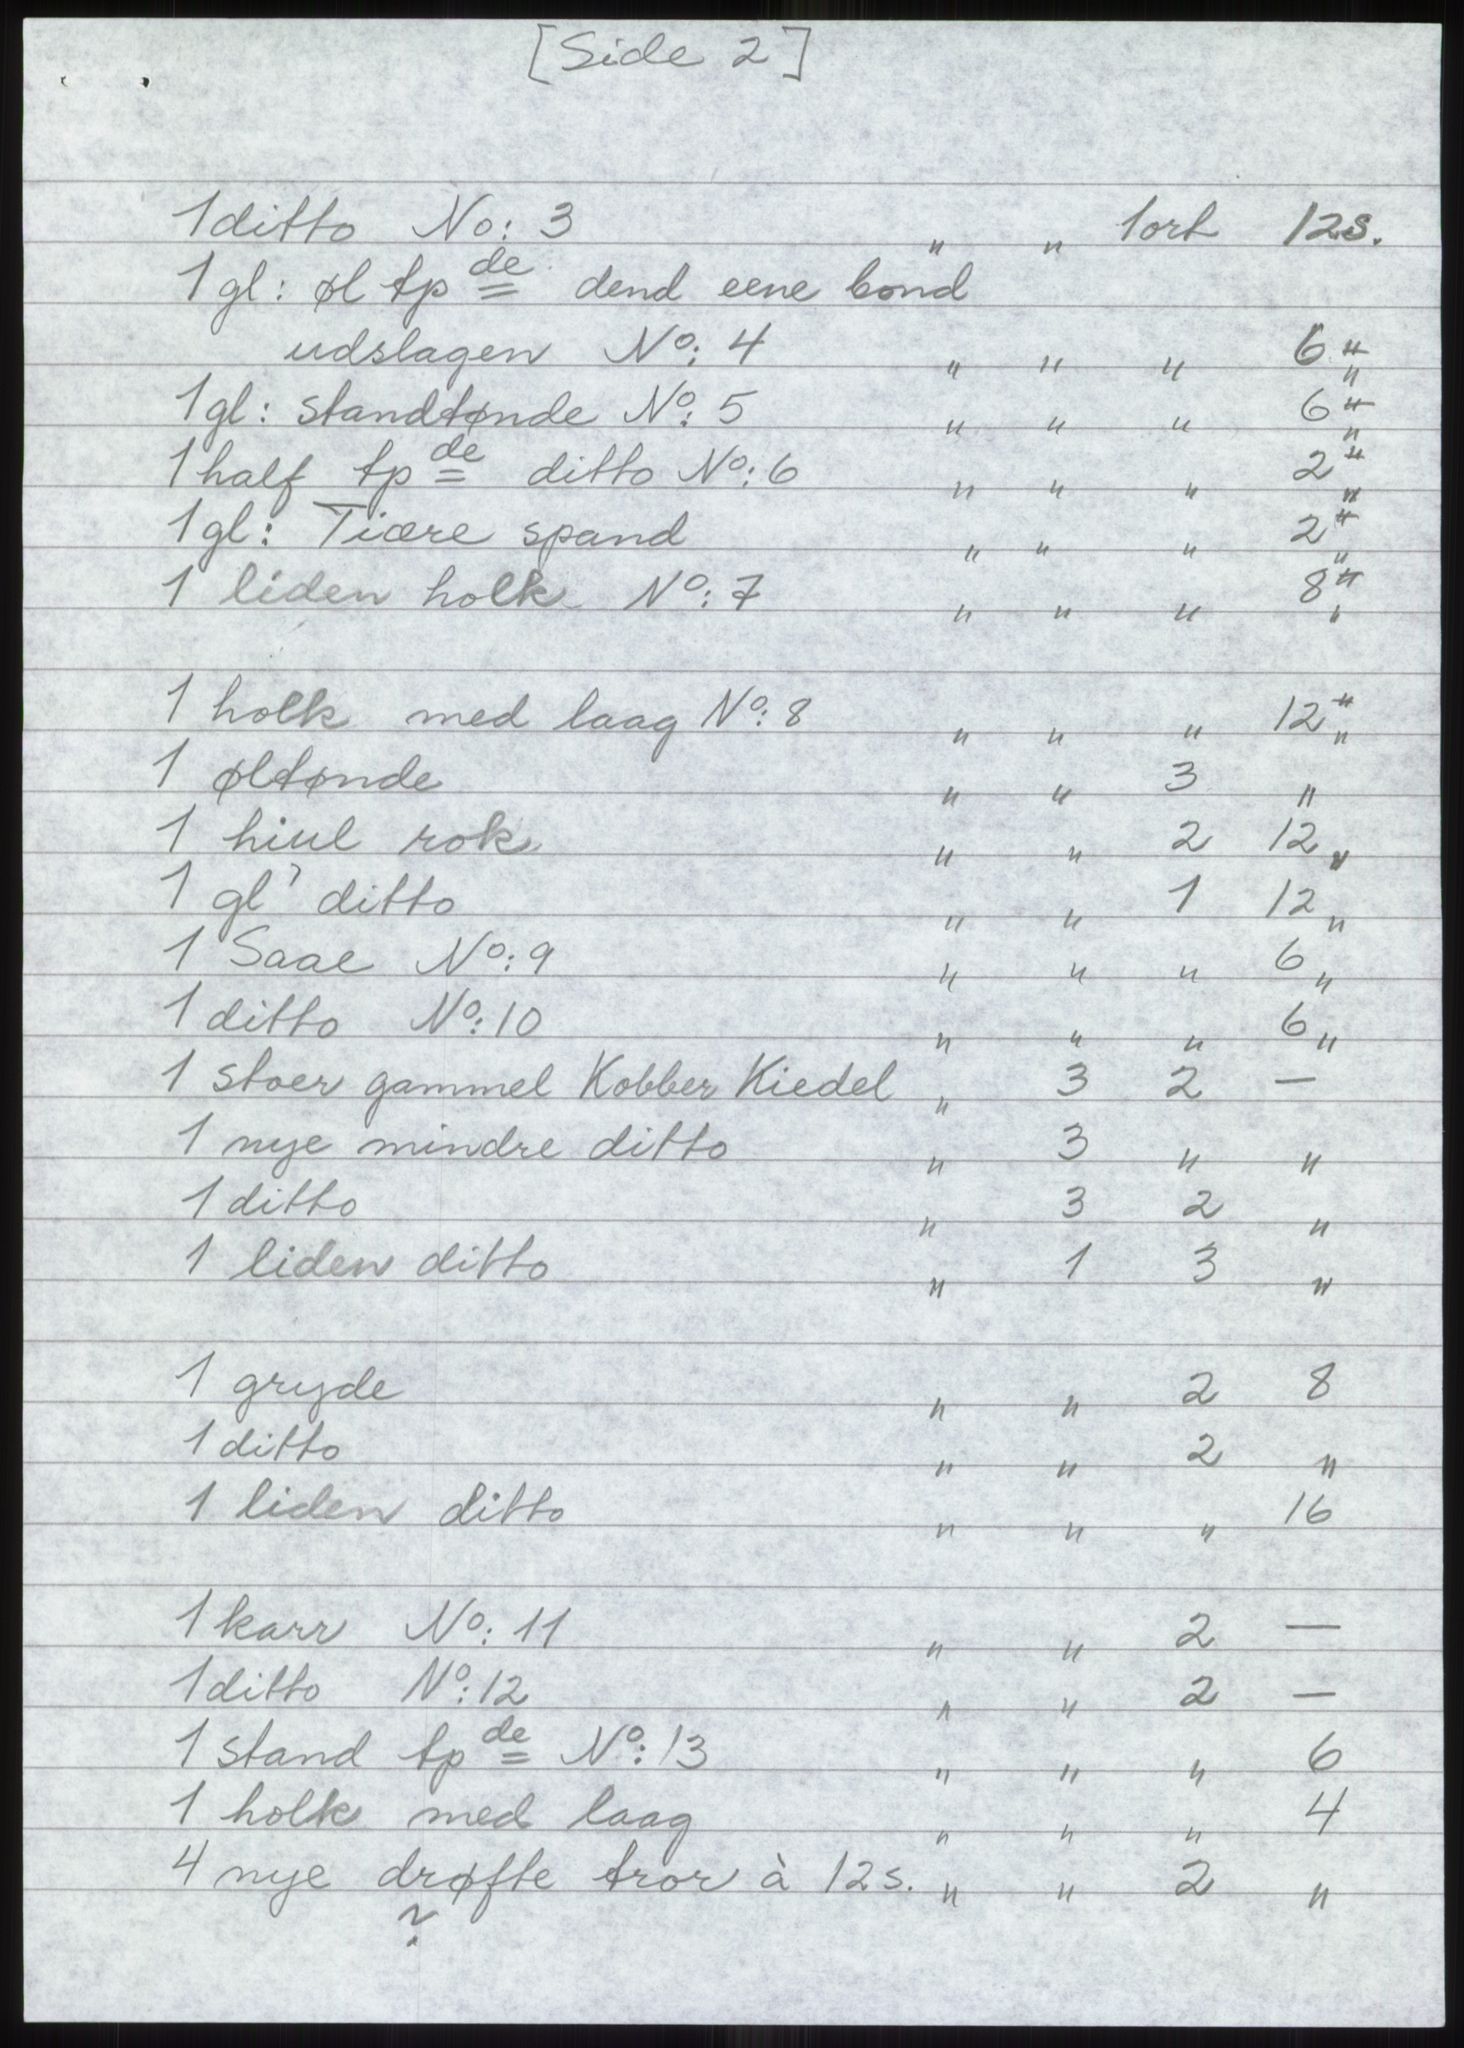 [Side 2]
1 ditto No: 3 " " 1 ort 12 s.
1 gl: øl tp de dend eene bond
udslagen No: 4 " " " 6 "
1 gl: standtønde No: 5 " " " 6 "
1 half tp de ditto No: 6 " " " 2 "
1 gl: Tiære spand " " " 2 "
1 liden holk No: 7 " " " 8 "
1 holk med laag No: 8 " " " 12 "
1 øltønde " " 3 "
1 hiul rok " " 2 12 "
1 gl' ditto " " 1 12 "
1 Saae No: 9 " " " 6 "
1 ditto No: 10 " " " 6 "
1 stoer gammel Kobber Kiedel " 3 2 —
1 nye mindre ditto " 3 " "
1 ditto " 3 2 "
1 liden ditto " 1 3 "
1 gryde " " 2 8
1 ditto " " 2 "
1 liden ditto " " " 16
1 karr No: 11 " " 2 —
1 ditto No: 12 " " 2 —
1 stand tp de No: 13 " " " 6
1 holk med laag " " " 4
4 nye drøfte tror à 12 s. " " 2 "
?